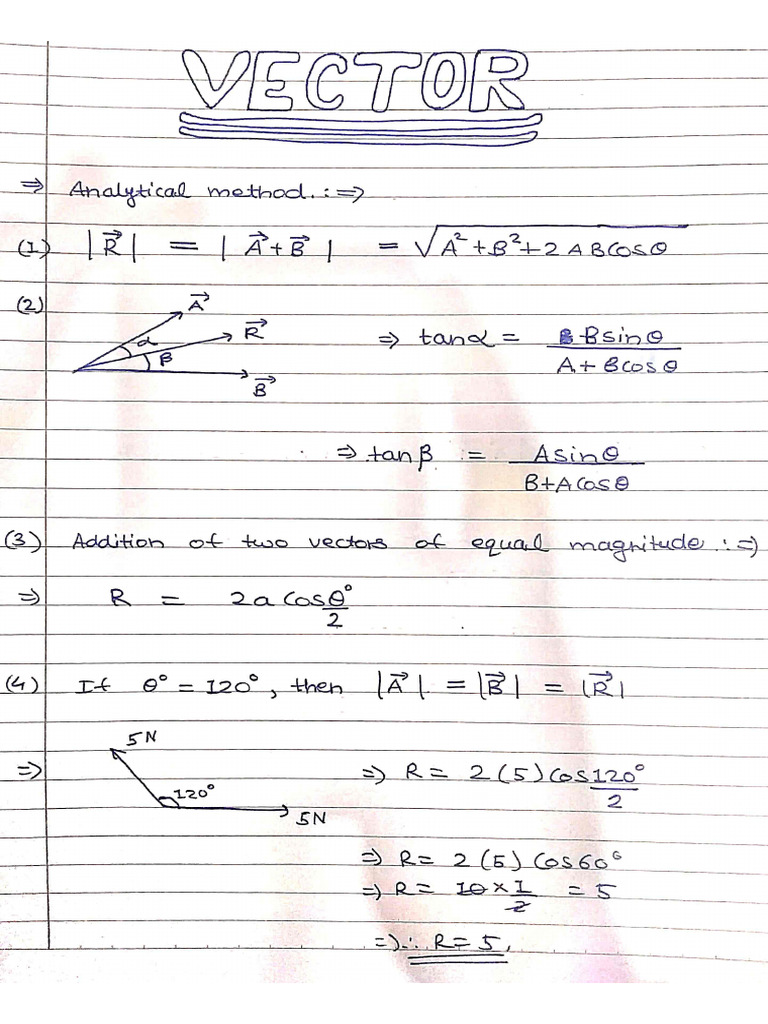 VECTOR
⇒ Analytical method.:⇒
(1) |R⃗| = |A⃗+B⃗| = √A²+B²+2ABcosθ
(2) A⃗
α R⃗ ⇒ tanα = Bsinθ / A+Bcosθ
β
B⃗
⇒ tanβ = Asinθ / B+Acosθ
(3) Addition of two vectors of equal magnitude.:⇒
⇒ R = 2a cosθ°/2
(4) If θ°=120°, then |A⃗| = |B⃗| = |R⃗|
5N
⇒ 120° ⇒ R = 2(5)cos120°/2
5N
⇒ R = 2(5)cos60°
⇒ R = 10×1/2 = 5
⇒∴ R=5.